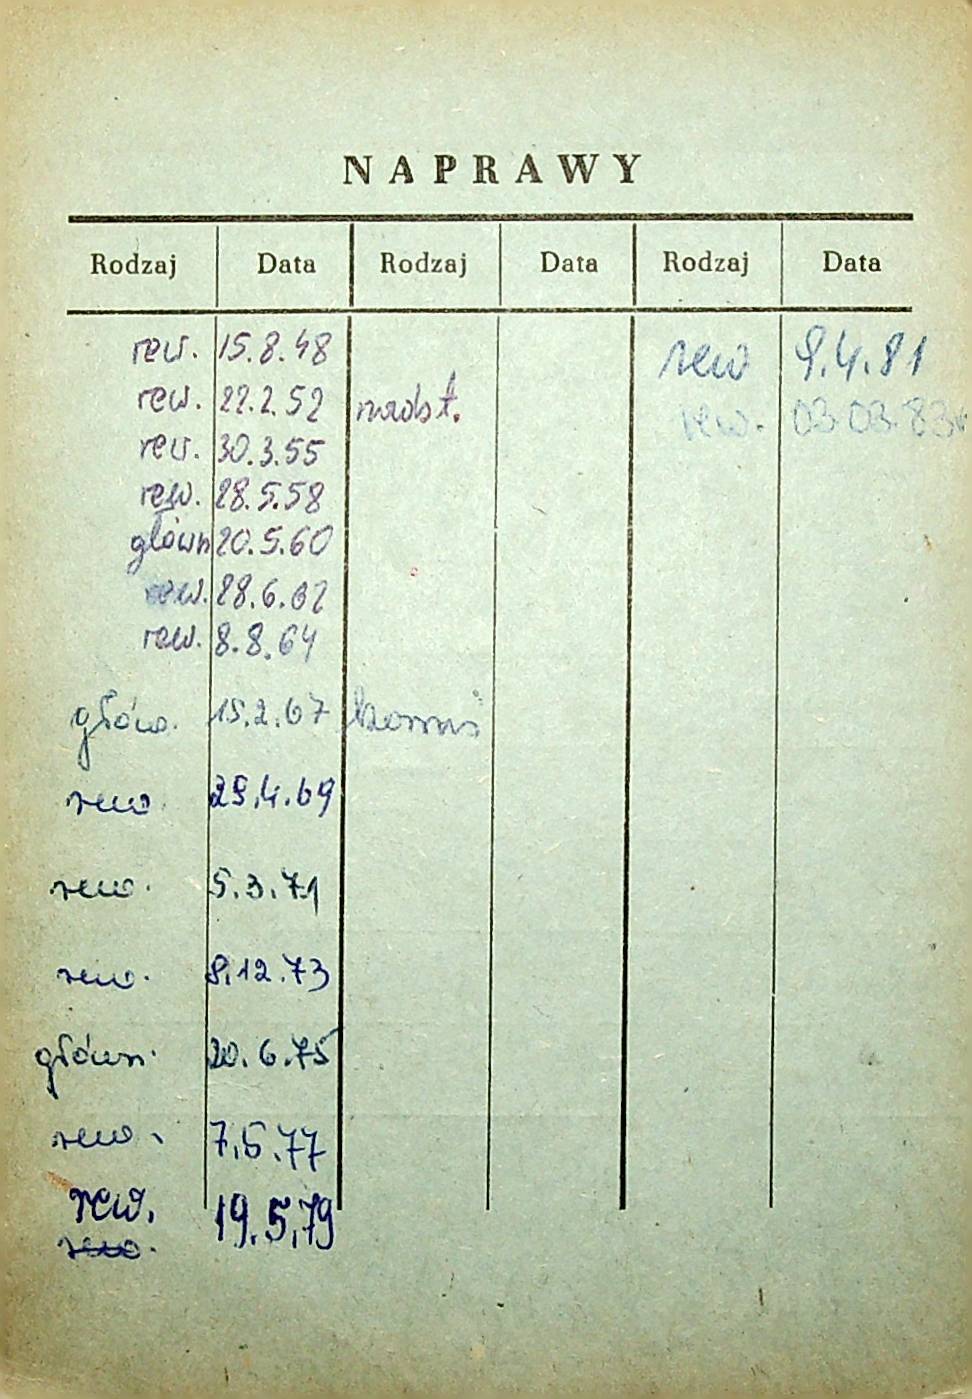 NAPRAWY
Rodzaj Data Rodzaj Data Rodzaj Data
rew. 15.8.48 rew 9.4.81
rew. 22.2.52 nadst. rew. 03.03.83
rew. 30.3.55
rew. 28.5.58
główn 20.5.60
rew. 28.6.62
rew. 8.8.64
główn. 15.2.67
rew. 29.4.69
rew. 5.3.71
rew. 8.12.73
główn. 20.6.75
rew. 7.5.77
rew. 19.5.79
rew.